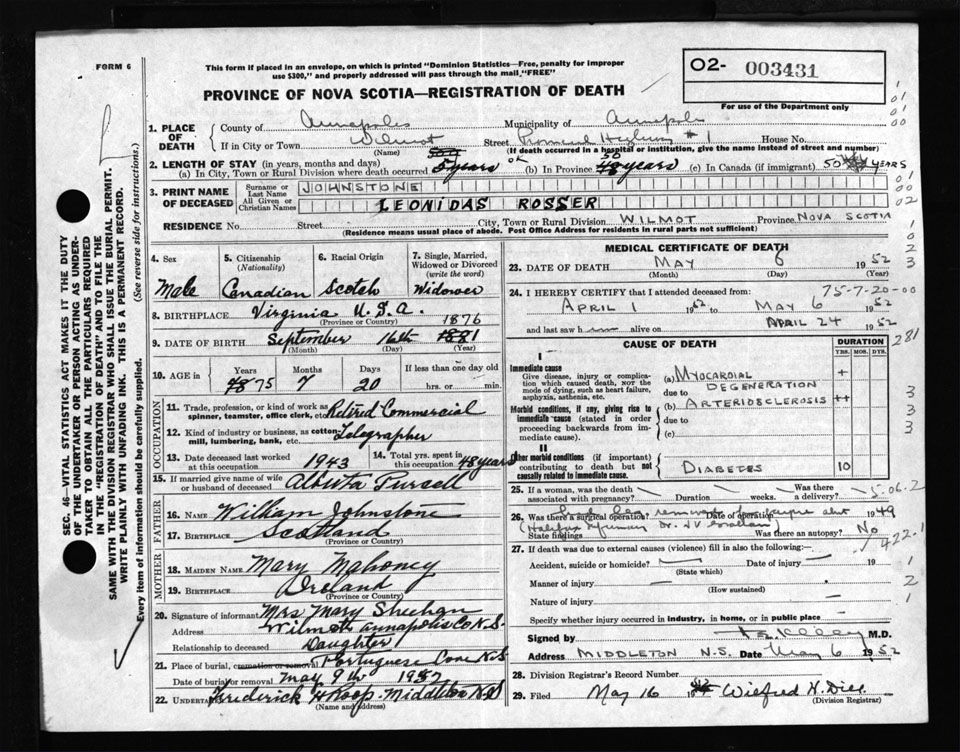 FORM 6
This form if placed in an envelope, on which is printed "Dominion Statistics—Free, penalty for improper
use $300," and properly addressed will pass through the mail "FREE"
PROVINCE OF NOVA SCOTIA—REGISTRATION OF DEATH
O2- 003431
For use of the Department only
1. PLACE OF DEATH
County of Annapolis Municipality of Annapolis
If in City or Town Wilmot Street # 1 House No.
(Name) (If death occurred in a hospital or institution, give the name instead of street and number)
2. LENGTH OF STAY (in years, months and days)
(a) In City, Town or Rural Division where death occurred 5 years (b) In Province 50 48 years (c) In Canada (if immigrant) 50 YEARS
3. PRINT NAME OF DECEASED
Surname or Last Name JOHNSTONE
All Given or Christian Names LEONIDAS ROSSER
RESIDENCE No. Street City, Town or Rural Division WILMOT Province NOVA SCOTIA
(Residence means usual place of abode. Post Office Address for residents in rural parts not sufficient)
4. Sex
Male
5. Citizenship (Nationality)
Canadian
6. Racial Origin
Scotch
7. Single, Married, Widowed or Divorced (write the word)
Widower
8. BIRTHPLACE Virginia U.S.A.
(Province or Country)
1876
9. DATE OF BIRTH September 16th 1881
(Month) (Day) (Year)
10. AGE in Years Months Days If less than one day old
75 7 20 hrs. or min.
OCCUPATION
11. Trade, profession, or kind of work as spinner, teamster, office clerk, etc. Retired Commercial
12. Kind of industry or business, as cotton mill, lumbering, bank, etc. Telegrapher
13. Date deceased last worked at this occupation 1943
14. Total yrs. spent in this occupation 48 years
15. If married give name of wife or husband of deceased Alberta
FATHER
16. NAME William Johnstone
17. BIRTHPLACE Scotland
(Province or Country)
MOTHER
18. MAIDEN NAME Mary Mahoney
19. BIRTHPLACE Ireland
(Province or Country)
20. Signature of informant Mrs Mary Sheehan
Address Wilmot Annapolis Co N.S.
Relationship to deceased Daughter
21. Place of burial, cremation or removal Portuguese Cove N.S
Date of burial or removal May 9th 1952
22. Undertaker Frederick H Roop Middleton N.S
(Name and address)
MEDICAL CERTIFICATE OF DEATH
23. DATE OF DEATH MAY 6 1952
(Month) (Day) (Year)
24. I HEREBY CERTIFY that I attended deceased from: 75-7-20-00
APRIL 1 1952 to MAY 6 1952
and last saw him alive on APRIL 24 1952
281
CAUSE OF DEATH
DURATION
YRS. MOS. DYS.
I
Immediate cause
Give disease, injury or complication which caused death, not the mode of dying, such as heart failure, asphyxia, asthenia, etc.
(a) MYOCARDIAL DEGENERATION +
due to
Morbid conditions, if any, giving rise to immediate cause (stated in order proceeding backwards from immediate cause).
(b) ARTERIOSCLEROSIS ++
due to
(c)
II
Other morbid conditions (if important) contributing to death but not causally related to immediate cause.
DIABETES 10
25. If a woman, was the death associated with pregnancy? Duration weeks. Was there a delivery?
5.06.2
26. Was there a surgical operation? Date of operation 1949
State findings (Halifax Infirmary Dr. ) Was there an autopsy? No
422.1
27. If death was due to external causes (violence) fill in also the following:—
Accident, suicide or homicide? Date of injury
(State which)
Manner of injury
(How sustained)
Nature of injury
Specify whether injury occurred in industry, in home, or in public place
Signed by Kelley M.D.
Address MIDDLETON N.S. Date May 6 1952
28. Division Registrar's Record Number
29. Filed May 16 19 Wilfred H. Dill
(Division Registrar)
SEC. 46—VITAL STATISTICS ACT MAKES IT THE DUTY
OF THE UNDERTAKER OR PERSON ACTING AS UNDER-
TAKER TO OBTAIN ALL THE PARTICULARS REQUIRED
IN THE "REGISTRATION OF DEATH" AND TO FILE THE
SAME WITH THE DIVISION REGISTRAR WHO SHALL ISSUE THE BURIAL PERMIT.
WRITE PLAINLY WITH UNFADING INK. THIS IS A PERMANENT RECORD.
Every item of information should be carefully supplied. (See reverse side for instructions.)